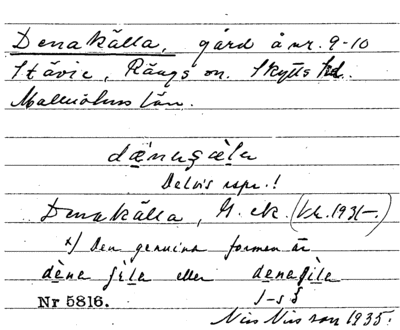 Denakälla, gård å nr. 9-10
Stävie, Rängs sn. Skytts hd.
Malmöhus län.
dænagæla
Delvis rspr.!
Denakälla, G. ek. (kh. 1931-.)
x) Den genuina formen är
dèna jèla eller denagìla
Nr 5816.
Nils Nilsson 1935.